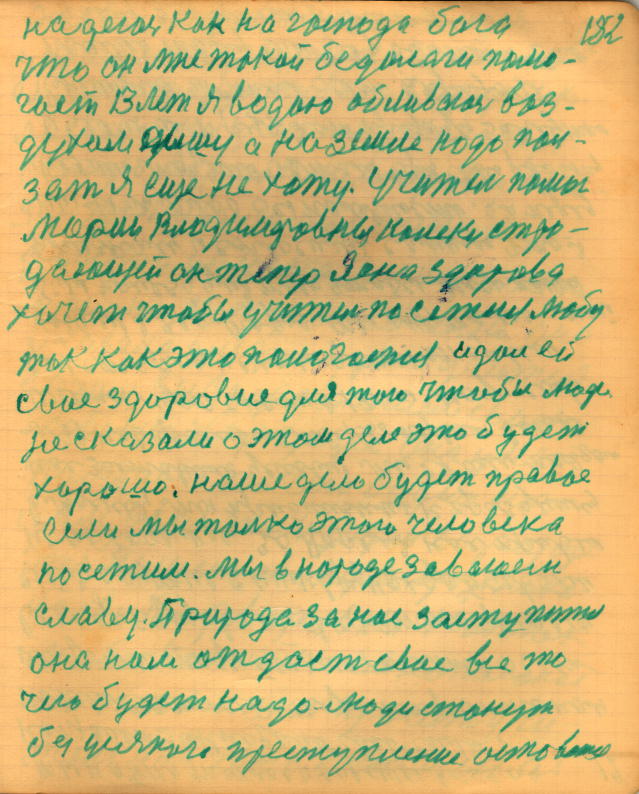 182
надеюс как на господа бога
что он мне такой бедолаги помо-
гает 13 лет я водою обливаюс воз-
духом дышу а на земле надо пол-
зат я еще не хожу. Учител помог
Марии Владимировны калеку стро-
дающей он тепер Яена здорова
хочет чтобы учител посетил Любу
так как это полагаетия идал ей
свое здоровие для того чтобы люди
несказали о этом деле это будет
хорошо. наше дело будет правое
Если мы толко этого человека
посетим. мы в народе заваюем
славу. Природа за нас заступится
она нам отдаст свое все то
чего будет надо люди станут
без усякого преступление